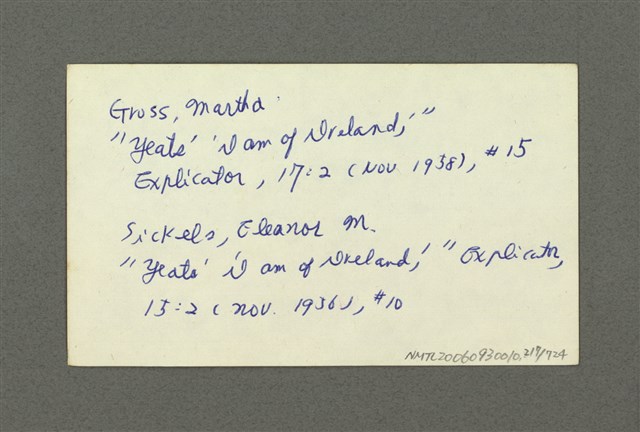 Gross, Martha.
"Yeats' 'I am of Ireland,'"
Explicator, 17:2 (Nov 1938), #15
Sickels, Eleanor M.
"Yeats' 'I am of Ireland,'" Explicator,
15:2 (Nov. 1936), #10
NMTL20060930010,217/724